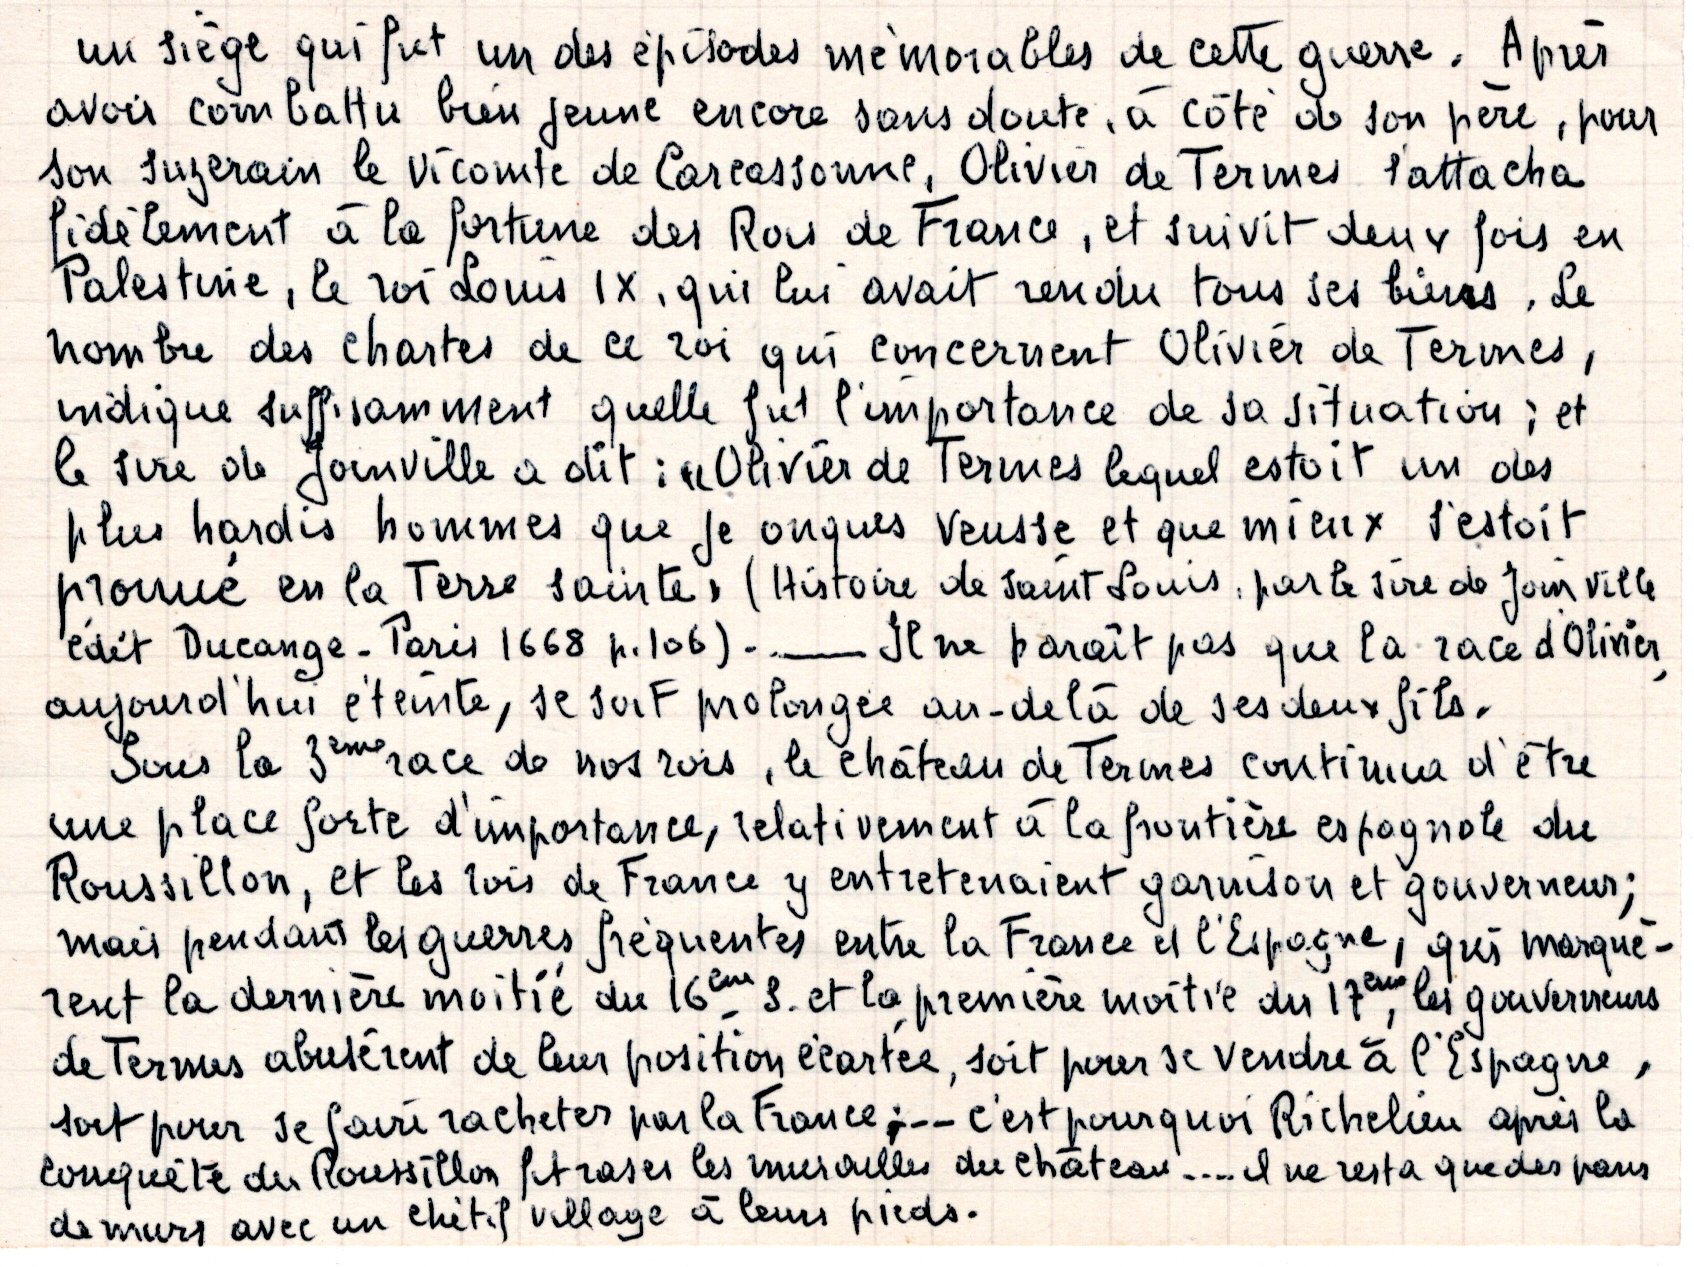 un siège qui fut un des épisodes mémorables de cette guerre. Après
avoir combattu bien jeune encore sans doute, à côté de son père, pour
son suzerain le Vicomte de Carcassonne, Olivier de Termes s'attacha
fidèlement à la fortune des Rois de France, et suivit deux fois en
Palestine, le roi Louis IX, qui lui avait rendu tous ses biens. Le
nombre des chartes de ce roi qui concernent Olivier de Termes,
indique suffisamment quelle fut l'importance de sa situation ; et
le sire de Joinville a dit : « Olivier de Termes lequel estoit un des
plus hardis hommes que je onques veusse et que mieux s'estoit
prouué en la Terre sainte » (Histoire de saint Louis, par le sire de Joinville
édit Ducange - Paris 1668 p. 106) . — Il ne paraît pas que la race d'Olivier,
aujourd'hui éteinte, se soit prolongée au-delà de ses deux fils.
Sous la 3ème race de nos rois, le château de Termes continua d'être
une place forte d'importance, relativement à la frontière espagnole du
Roussillon, et les rois de France y entretenaient garnison et gouverneur ;
mais pendant les guerres fréquentes entre la France et l'Espagne, qui marquè-
rent la dernière moitié du 16ème s. et la première moitié du 17ème, les gouverneurs
de Termes abusèrent de leur position écartée, soit pour se vendre à l'Espagne,
soit pour se faire racheter par la France ; -- c'est pourquoi Richelieu après la
conquête du Roussillon fit raser les murailles du château .... il ne resta que des pans
de murs avec un chétif village à leurs pieds.